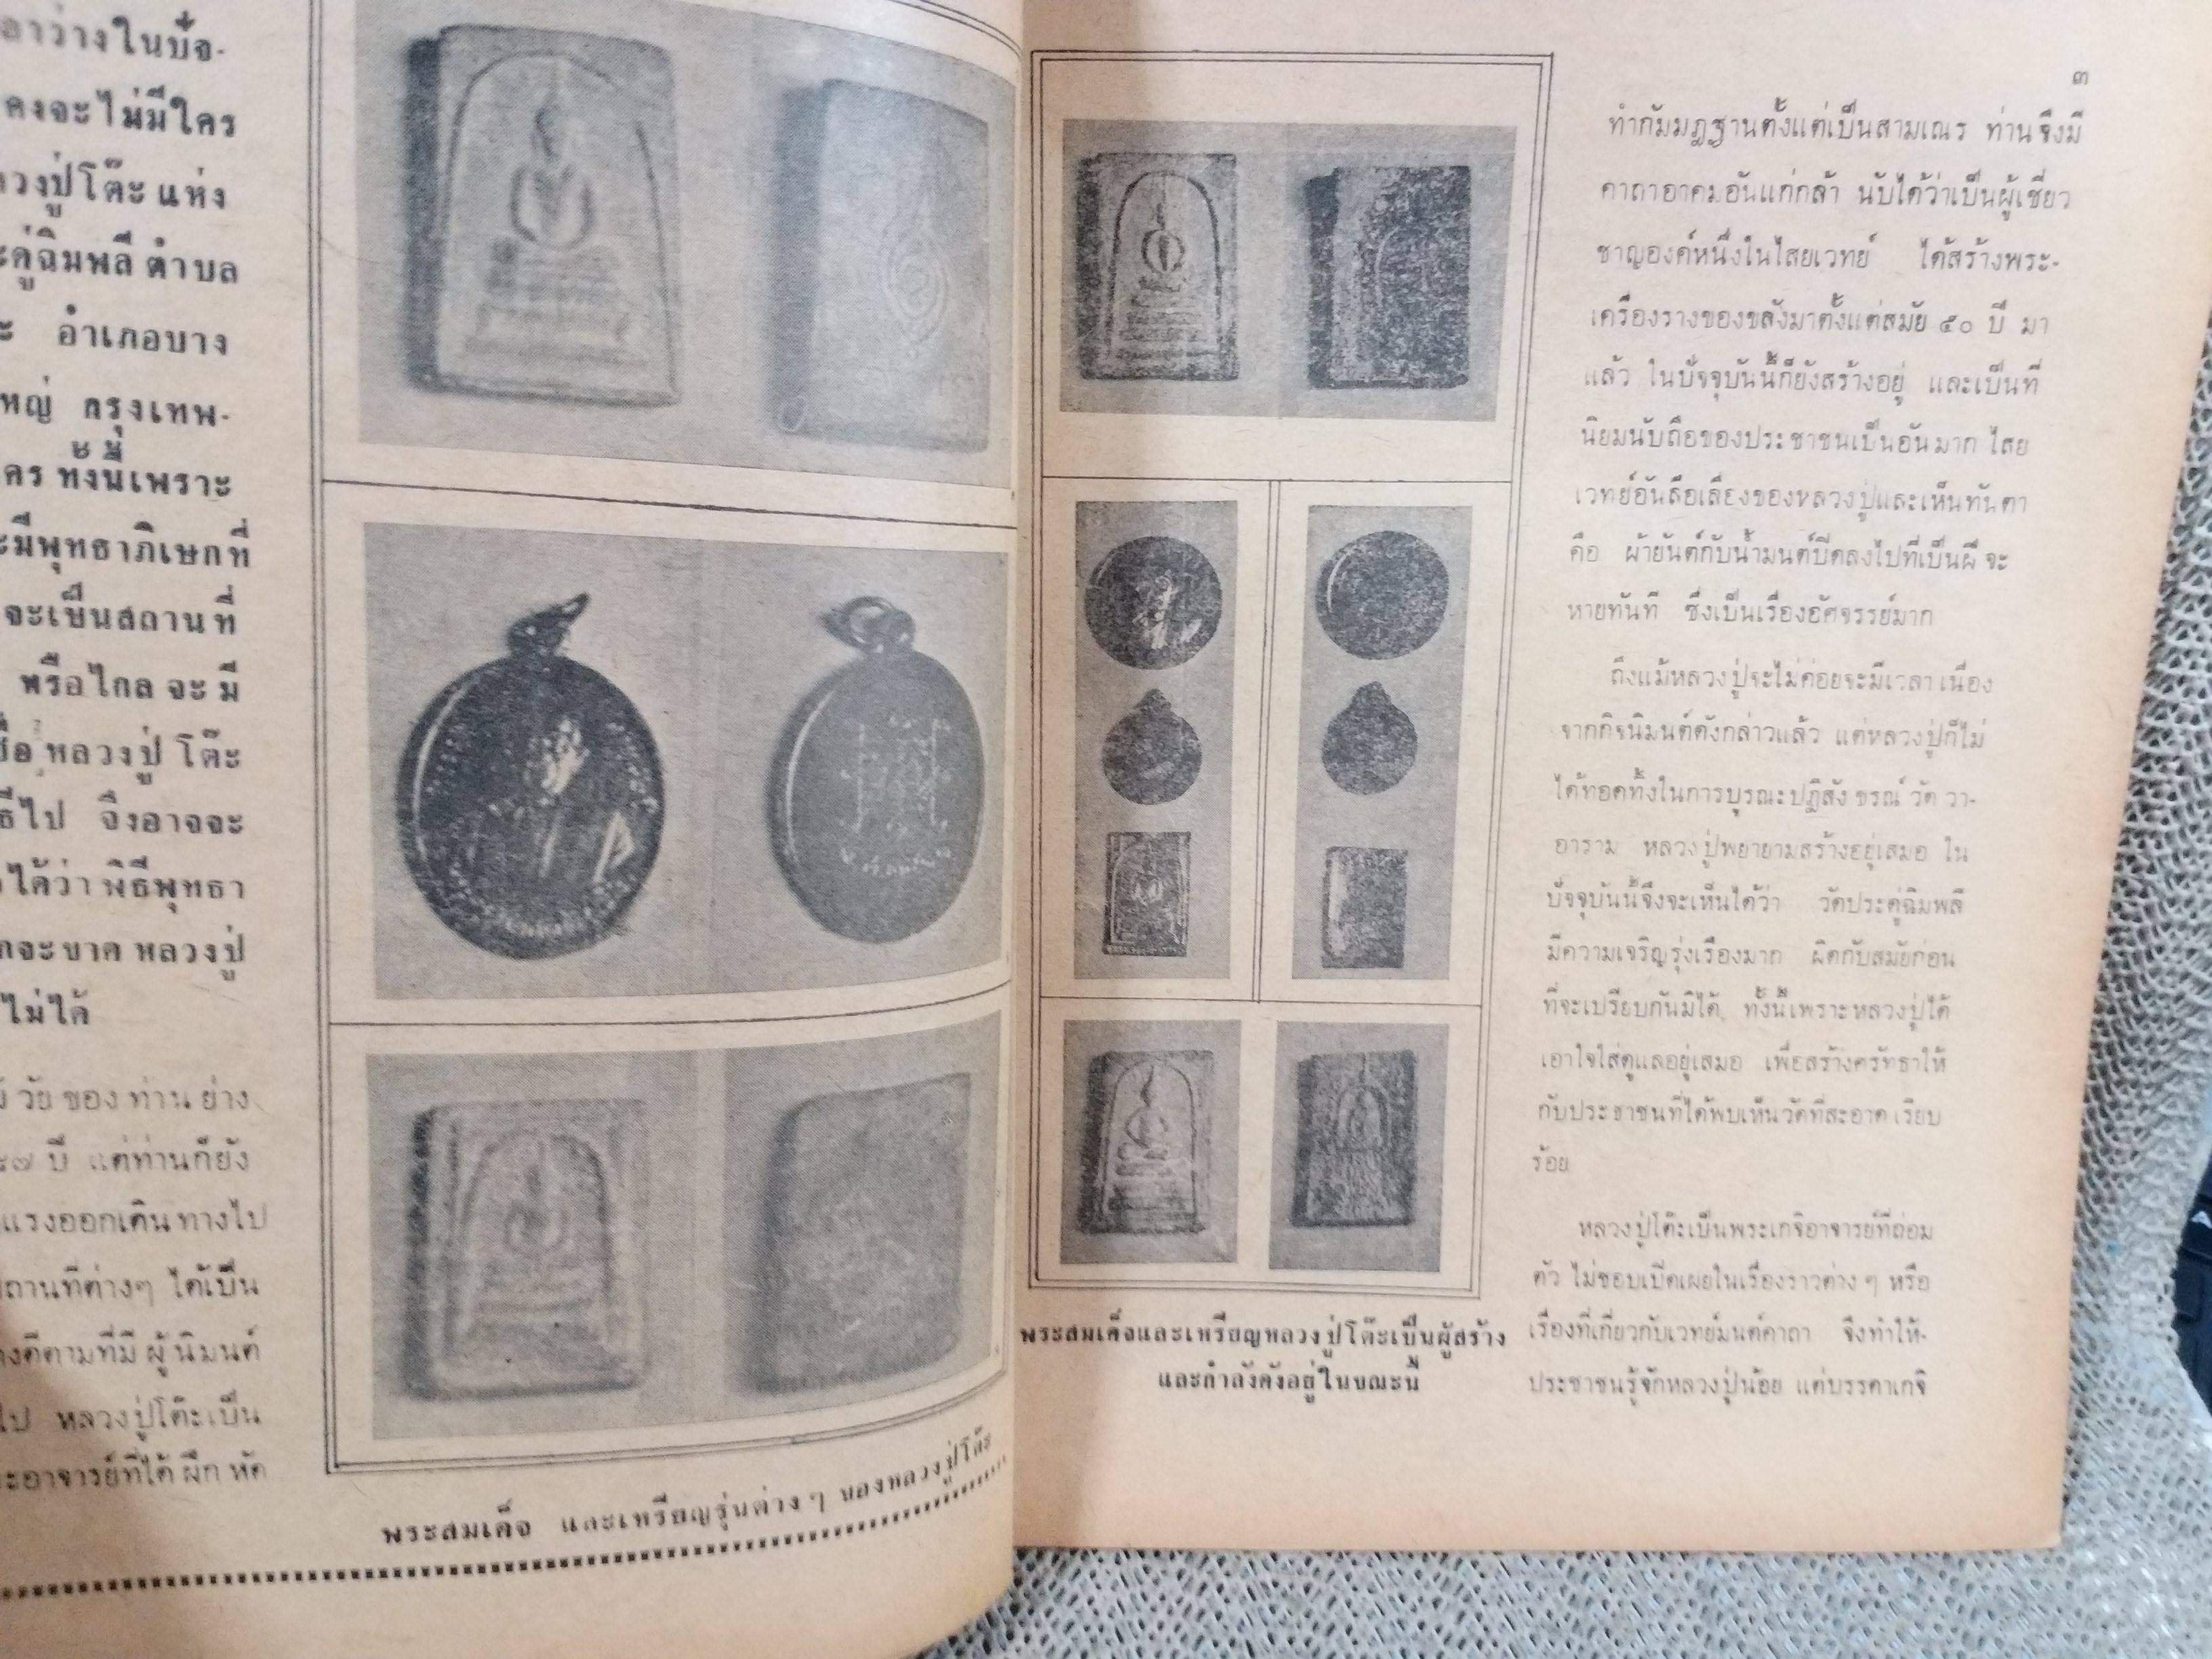 ลาว่างในปัจ-
คงจะไม่มีใคร
หลวงปู่โต๊ะ แห่ง
ะดู่ฉิมพลี ตำบล
ะ อำเภอบาง
หญ่ กรุงเทพ-
คร ทั้งนี้เพราะ
ะมีพุทธาภิเษกที่
จะเป็นสถานที่
หรือไกล จะมี
ชื่อ หลวงปู่ โต๊ะ
ธีไป จึงอาจจะ
ได้ว่า พิธีพุทธา
กจะขาด หลวงปู่
ไม่ได้
วัย ของ ท่าน ย่าง
๗ ปี แต่ท่านก็ยัง
แรงออกเดินทางไป
ถานที่ต่างๆ ได้เป็น
งดีตามที่มี ผู้นิมนต์
ไป หลวงปู่โต๊ะเป็น
ะอาจารย์ที่ได้ ฝึก หัด
พระสมเด็จ และเหรียญรุ่นต่าง ๆ ของหลวงปู่โต๊ะ
พระสมเด็จและเหรียญหลวงปู่โต๊ะเป็นผู้สร้าง
และกำลังดังอยู่ในขณะนี้
๓
ทำกัมมฎฐานตั้งแต่เป็นสามเณร ท่านจึงมี
คาถาอาคมอันแก่กล้า นับได้ว่าเป็นผู้เชี่ยว
ชาญองค์หนึ่งในไสยเวทย์ ได้สร้างพระ-
เครื่องรางของขลังมาตั้งแต่สมัย ๕๐ ปี มา
แล้ว ในปัจจุบันนี้ก็ยังสร้างอยู่ และเป็นที่
นิยมนับถือของประชาชนเป็นอันมาก ไสย
เวทย์อันลือเลื่องของหลวงปู่และเห็นทันตา
คือ ผ้ายันต์กับน้ำมนต์ปิดลงไปที่เป็นฝี จะ
หายทันที ซึ่งเป็นเรื่องอัศจรรย์มาก
ถึงแม้หลวงปู่จะไม่ค่อยจะมีเวลา เนื่อง
จากกิจนิมนต์ดังกล่าวแล้ว แต่หลวงปู่ก็ไม่
ได้ทอดทิ้งในการบูรณะปฏิสังขรณ์ วัด วา-
อาราม หลวงปู่พยายามสร้างอยู่เสมอ ใน
ปัจจุบันนี้จึงจะเห็นได้ว่า วัดประดู่ฉิมพลี
มีความเจริญรุ่งเรืองมาก ผิดกับสมัยก่อน
ที่จะเปรียบกันมิได้ ทั้งนี้เพราะหลวงปู่ได้
เอาใจใส่ดูแลอยู่เสมอ เพื่อสร้างศรัทธาให้
กับประชาชนที่ได้พบเห็นวัดที่สะอาด เรียบ
ร้อย
หลวงปู่โต๊ะเป็นพระเกจิอาจารย์ที่ถ่อม
ตัว ไม่ชอบเปิดเผยในเรื่องราวต่าง ๆ หรือ
เรื่องที่เกี่ยวกับเวทย์มนต์คาถา จึงทำให้-
ประชาชนรู้จักหลวงปู่น้อย แต่บรรดาเกจิ